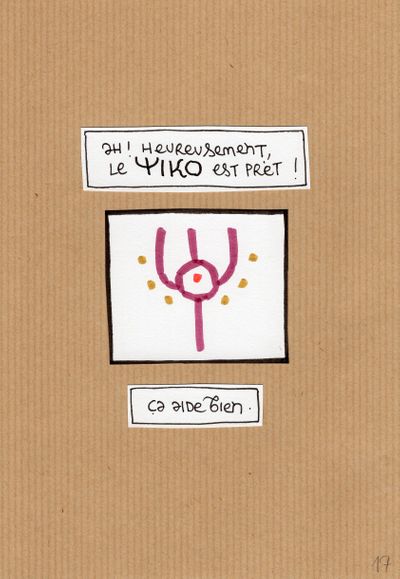 aH! HeureusemenT,
Le ΨIKO esT PRêT !
ça aIDe bIen.
17